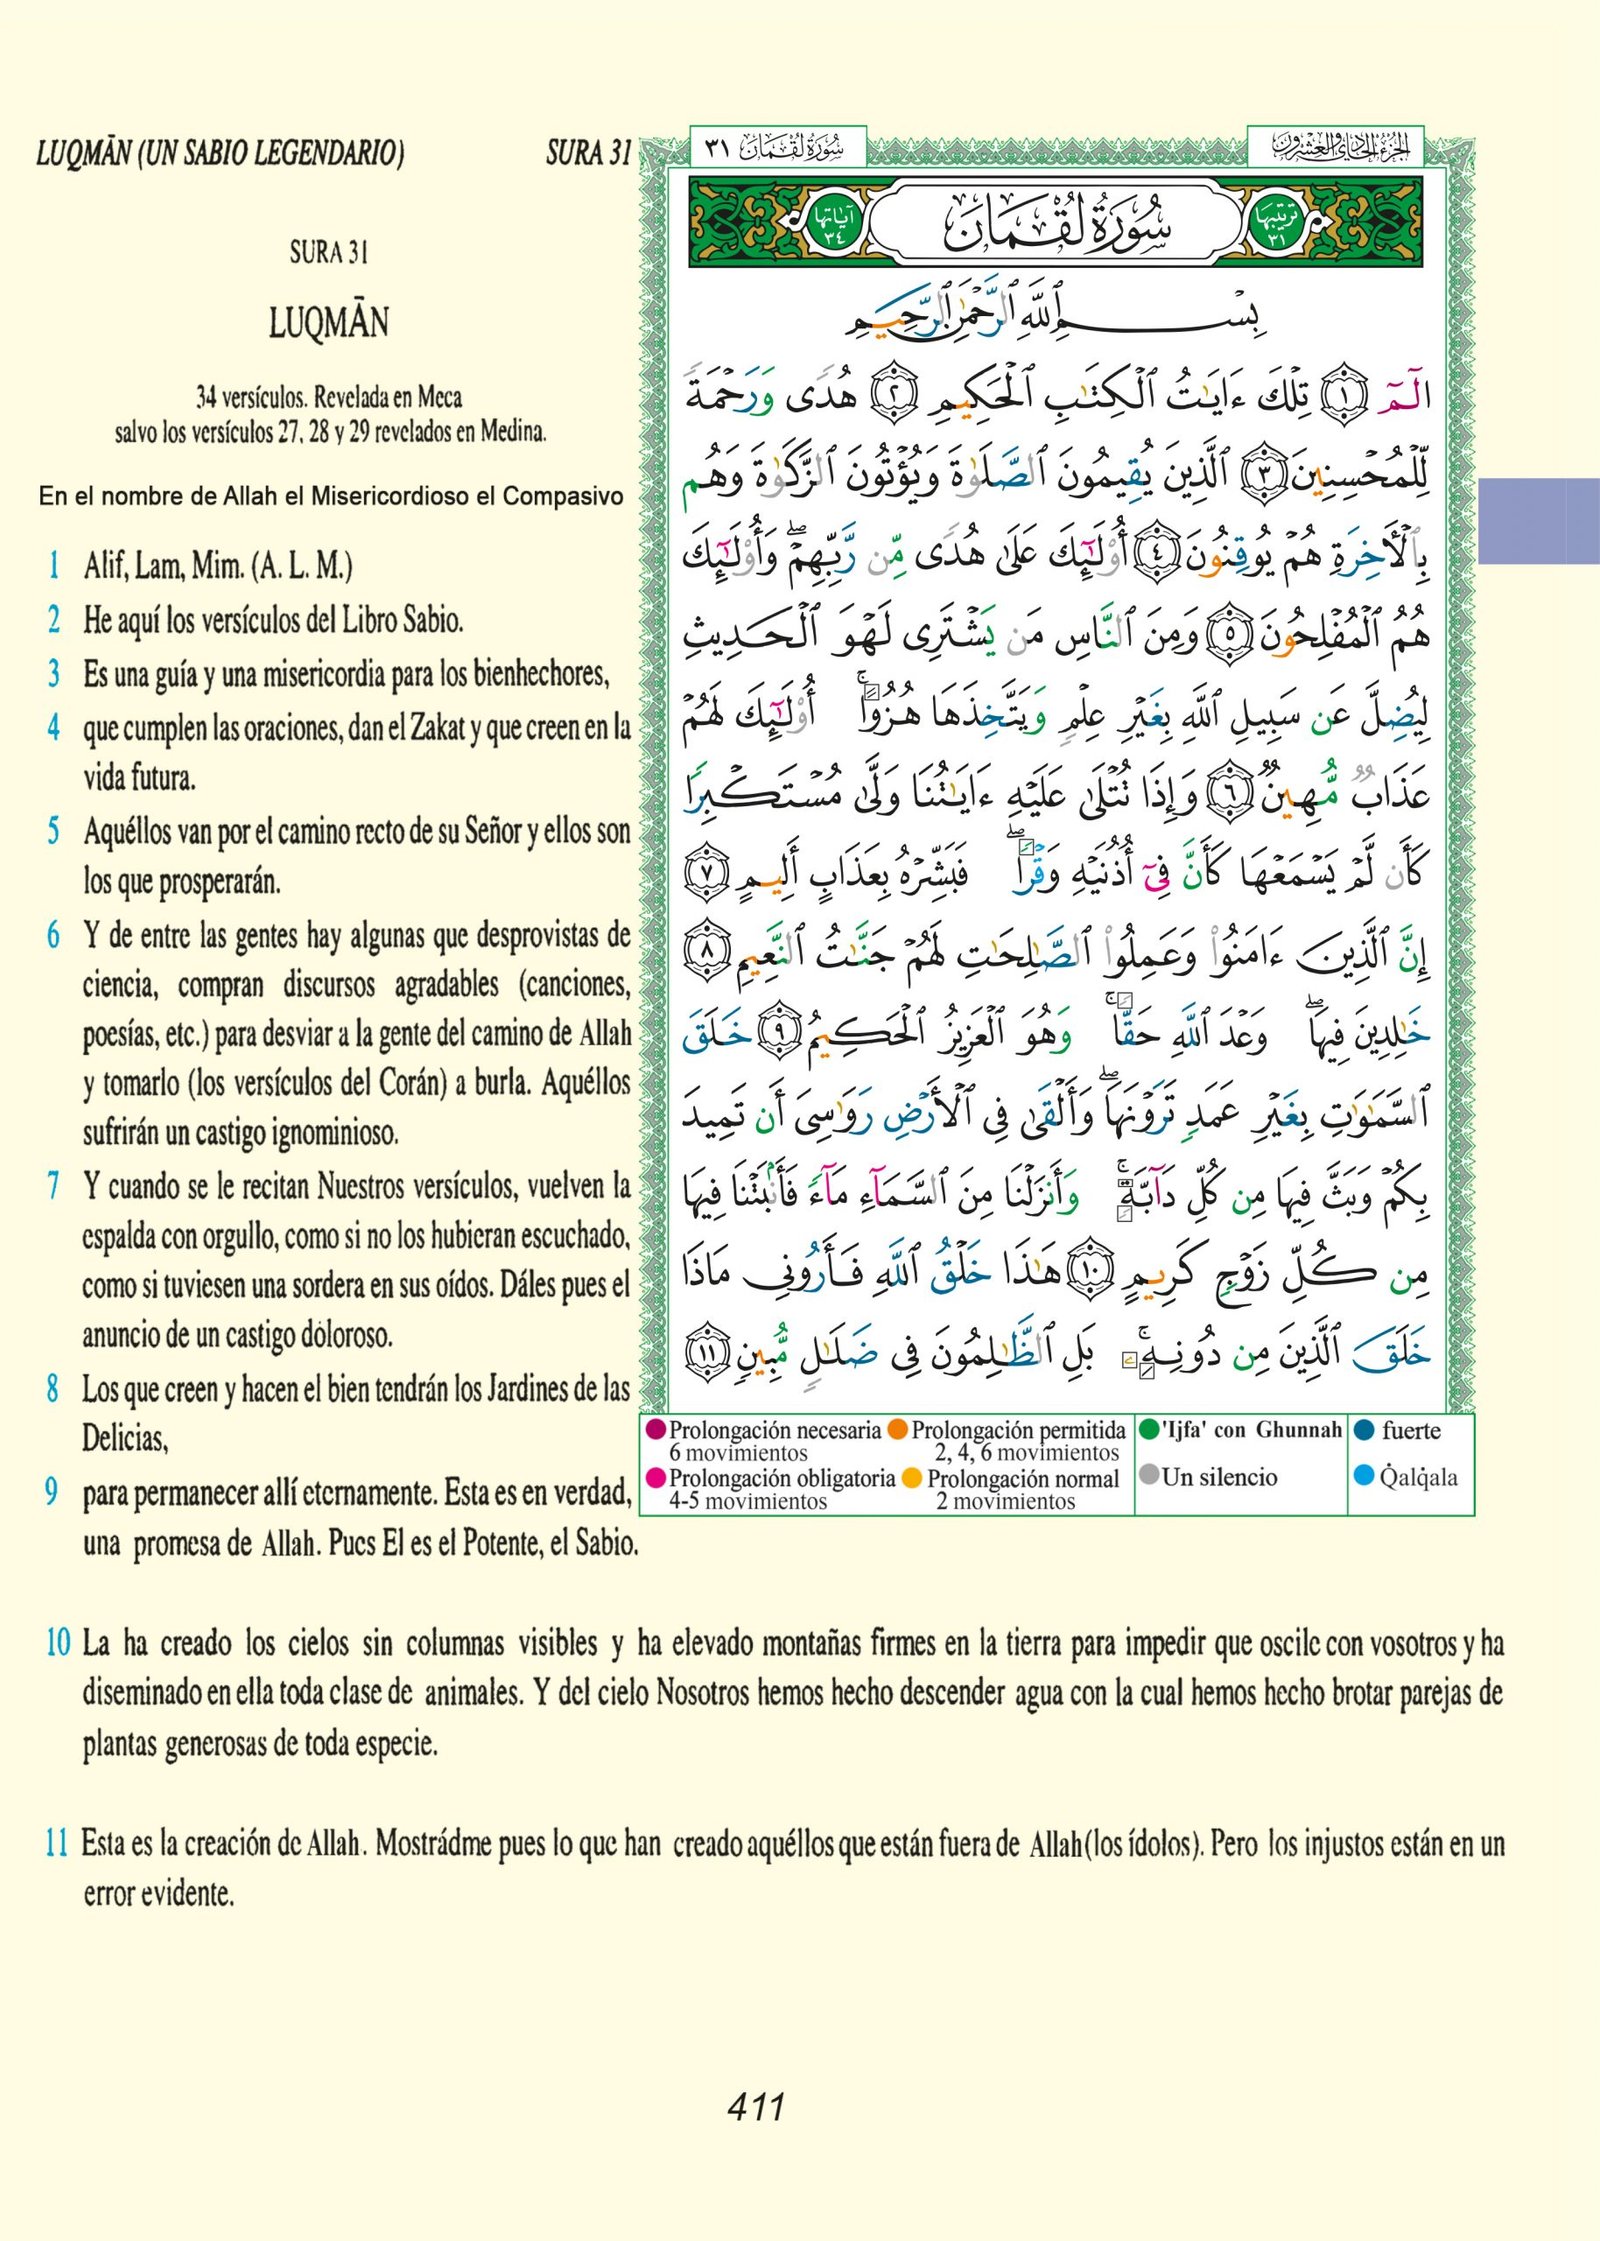 LUQMĀN (UN SABIO LEGENDARIO) SURA 31
SURA 31
LUQMĀN
34 versículos. Revelada en Meca
salvo los versículos 27, 28 y 29 revelados en Medina.
En el nombre de Allah el Misericordioso el Compasivo
1 Alif, Lam, Mim. (A. L. M.)
2 He aquí los versículos del Libro Sabio.
3 Es una guía y una misericordia para los bienhechores,
4 que cumplen las oraciones, dan el Zakat y que creen en la
vida futura.
5 Aquéllos van por el camino recto de su Señor y ellos son
los que prosperarán.
6 Y de entre las gentes hay algunas que desprovistas de
ciencia, compran discursos agradables (canciones,
poesías, etc.) para desviar a la gente del camino de Allah
y tomarlo (los versículos del Corán) a burla. Aquéllos
sufrirán un castigo ignominioso.
7 Y cuando se le recitan Nuestros versículos, vuelven la
espalda con orgullo, como si no los hubieran escuchado,
como si tuviesen una sordera en sus oídos. Dáles pues el
anuncio de un castigo doloroso.
8 Los que creen y hacen el bien tendrán los Jardines de las
Delicias,
9 para permanecer allí eternamente. Esta es en verdad,
una promesa de Allah. Pues El es el Potente, el Sabio.
الجزء الحادي والعشرون سورة لقمان ٣١
ترتيبها ٣١ سُورَةُ لُقْمَانَ آياتها ٣٤
بِسْمِ ٱللَّهِ ٱلرَّحْمَٰنِ ٱلرَّحِيمِ
الٓمٓ ١ تِلْكَ ءَايَٰتُ ٱلْكِتَٰبِ ٱلْحَكِيمِ ٢ هُدًى وَرَحْمَةً
لِّلْمُحْسِنِينَ ٣ ٱلَّذِينَ يُقِيمُونَ ٱلصَّلَوٰةَ وَيُؤْتُونَ ٱلزَّكَوٰةَ وَهُم
بِٱلْأَخِرَةِ هُمْ يُوقِنُونَ ٤ أُوْلَٰٓئِكَ عَلَىٰ هُدًى مِّن رَّبِّهِمْ ۖ وَأُوْلَٰٓئِكَ
هُمُ ٱلْمُفْلِحُونَ ٥ وَمِنَ ٱلنَّاسِ مَن يَشْتَرِى لَهْوَ ٱلْحَدِيثِ
لِيُضِلَّ عَن سَبِيلِ ٱللَّهِ بِغَيْرِ عِلْمٍ وَيَتَّخِذَهَا هُزُوًا ۚ أُوْلَٰٓئِكَ لَهُمْ
عَذَابٌ مُّهِينٌ ٦ وَإِذَا تُتْلَىٰ عَلَيْهِ ءَايَٰتُنَا وَلَّىٰ مُسْتَكْبِرًا
كَأَن لَّمْ يَسْمَعْهَا كَأَنَّ فِىٓ أُذُنَيْهِ وَقْرًا ۖ فَبَشِّرْهُ بِعَذَابٍ أَلِيمٍ ٧
إِنَّ ٱلَّذِينَ ءَامَنُوا۟ وَعَمِلُوا۟ ٱلصَّٰلِحَٰتِ لَهُمْ جَنَّٰتُ ٱلنَّعِيمِ ٨
خَٰلِدِينَ فِيهَا ۖ وَعْدَ ٱللَّهِ حَقًّا ۚ وَهُوَ ٱلْعَزِيزُ ٱلْحَكِيمُ ٩ خَلَقَ
ٱلسَّمَٰوَٰتِ بِغَيْرِ عَمَدٍ تَرَوْنَهَا ۖ وَأَلْقَىٰ فِى ٱلْأَرْضِ رَوَٰسِىَ أَن تَمِيدَ
بِكُمْ وَبَثَّ فِيهَا مِن كُلِّ دَآبَّةٍ ۚ وَأَنزَلْنَا مِنَ ٱلسَّمَآءِ مَآءً فَأَنۢبَتْنَا فِيهَا
مِن كُلِّ زَوْجٍ كَرِيمٍ ١٠ هَٰذَا خَلْقُ ٱللَّهِ فَأَرُونِى مَاذَا
خَلَقَ ٱلَّذِينَ مِن دُونِهِۦ ۚ بَلِ ٱلظَّٰلِمُونَ فِى ضَلَٰلٍ مُّبِينٍ ١١
Prolongación necesaria Prolongación permitida 'Ijfa' con Ghunnah fuerte
6 movimientos 2, 4, 6 movimientos
Prolongación obligatoria Prolongación normal Un silencio Q̇alq̇ala
4-5 movimientos 2 movimientos
10 La ha creado los cielos sin columnas visibles y ha elevado montañas firmes en la tierra para impedir que oscile con vosotros y ha
diseminado en ella toda clase de animales. Y del cielo Nosotros hemos hecho descender agua con la cual hemos hecho brotar parejas de
plantas generosas de toda especie.
11 Esta es la creación de Allah. Mostrádme pues lo que han creado aquéllos que están fuera de Allah(los ídolos). Pero los injustos están en un
error evidente.
411